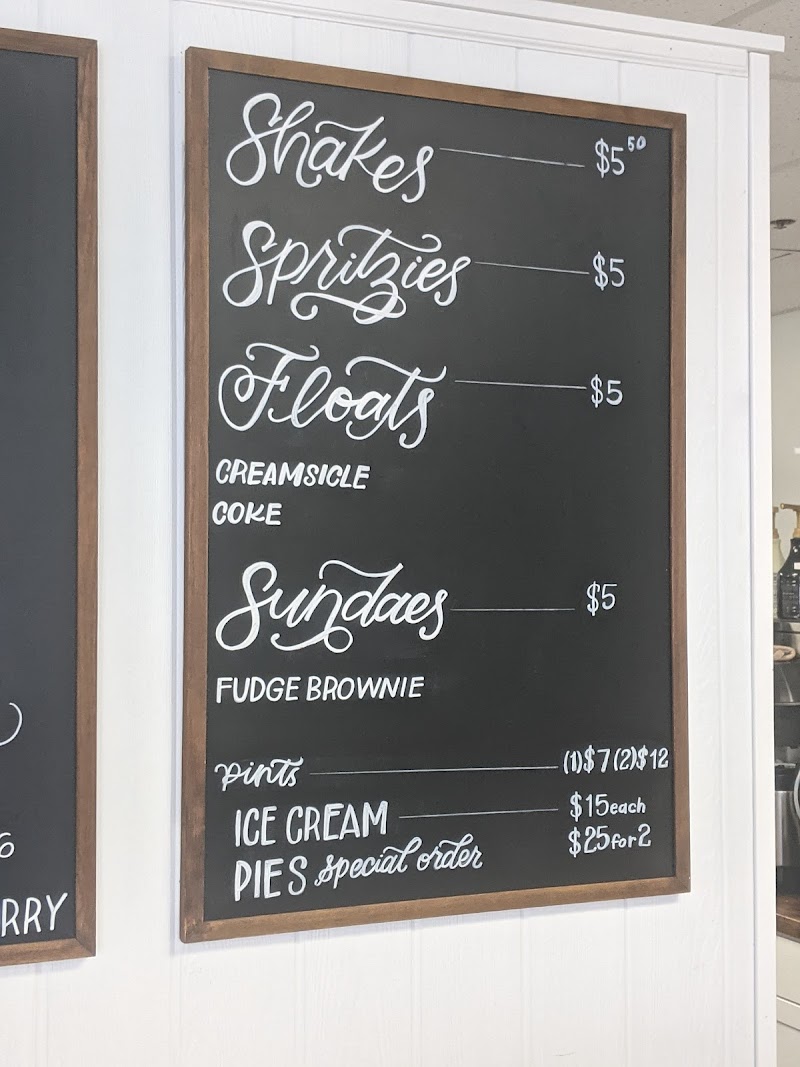 Shakes $5 50
Spritzies $5
Floats $5
CREAMSICLE
COKE
Sundaes $5
FUDGE BROWNIE
pints (1)$7 (2)$12
ICE CREAM $15 each
PIES special order $25 for 2
RRY